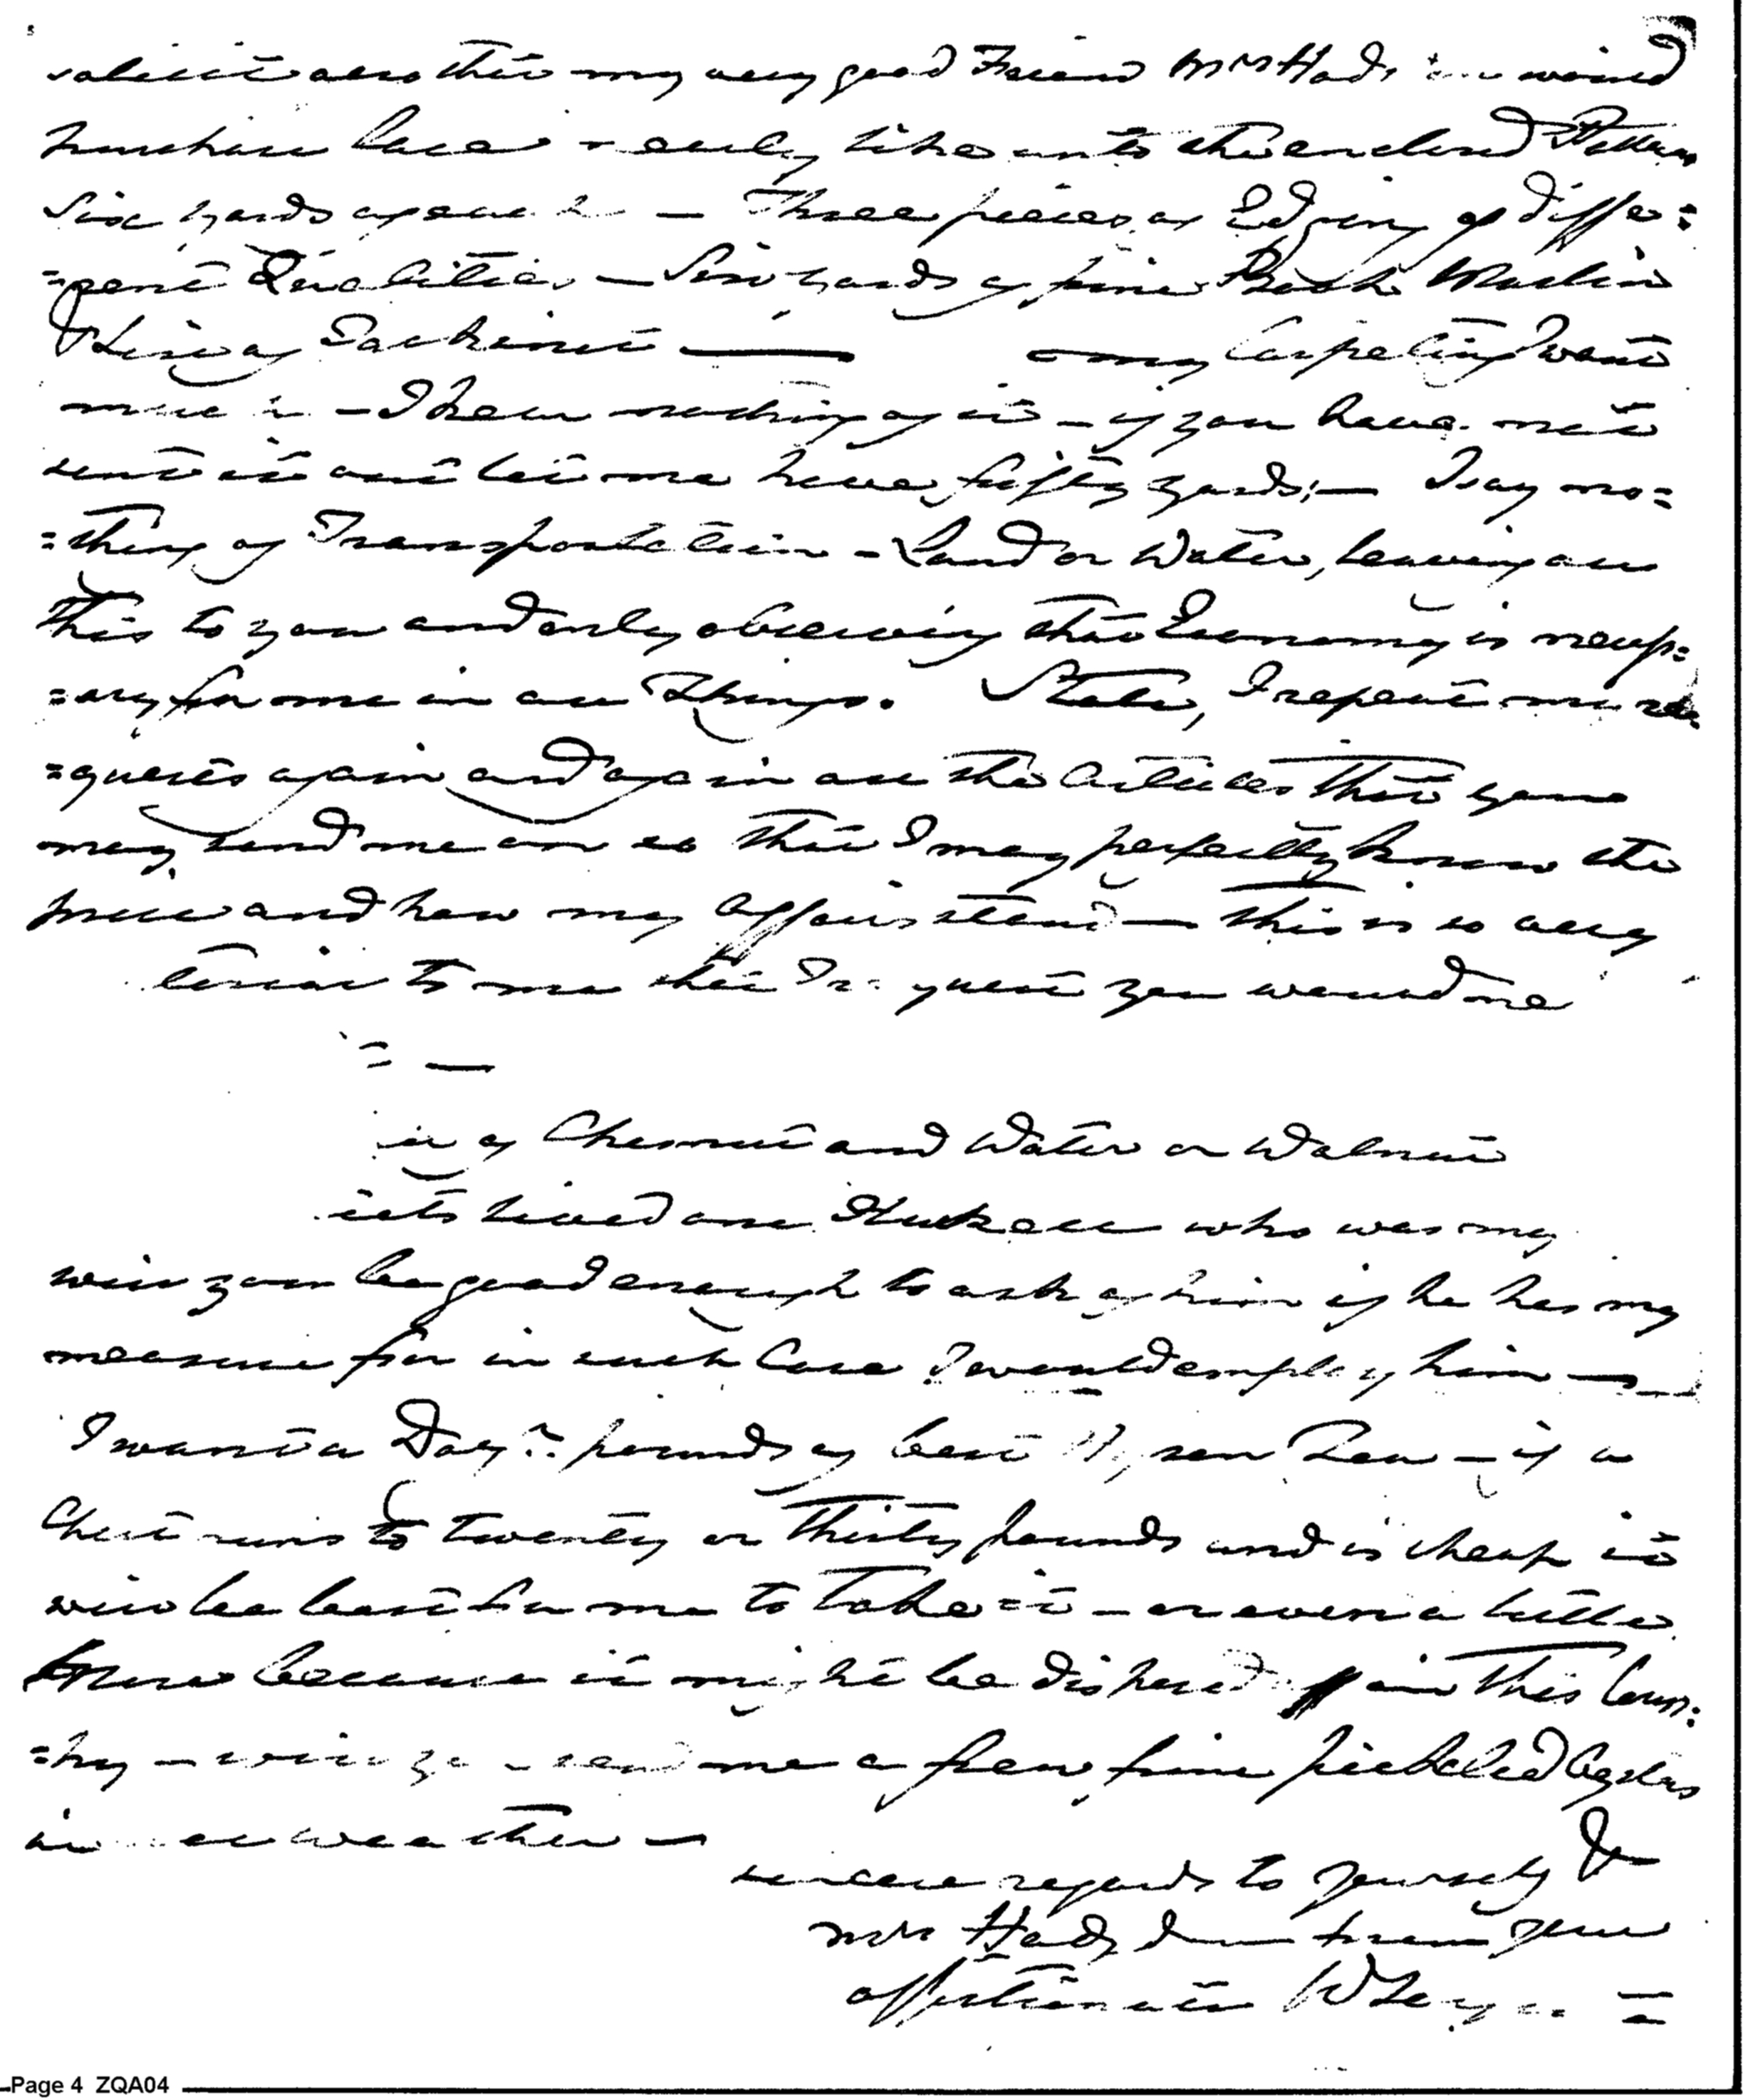 solicit also that my very good Friend Mrs Hodg would
purchase lace nearly like unto the enclosed Pattern
Six yards of each — Three pieces of Edging of diffe=
=rent Qualities — Six yards of fine Book Muslin
& of Jackonet — my Carpeting I want
much — I hear nothing of it — if you have not
sent it out let me have fifty yards; — I say no=
=thing of Transportation — Land or Water, leaving all
this to you and only observing that Economy is necess=
=ary for me in all Things. State, I repeat my re=
=quests again and again all the Articles that you
may send me so that I may perfectly know the
price and how my Affairs stand — this is so very
to me that I request you would
= —
of Chesnut and Water or Walnut
lived one who was my
will you be good enough to ask of him if he has my
measure for in such Case I would employ him —
I want a Doz: pounds of best Hyson Tea — if a
Chest runs to twenty or Thirty pounds and is cheap it
will be best for me to take it — or even a little
more because it might be disposed of in this Coun=
=try — will you send me a few fine pickeled Oysters
in weather —
sincere regards to yourself &
Mrs Hodg I am from your
affectionate W Sargent =
Page 4 ZQA04